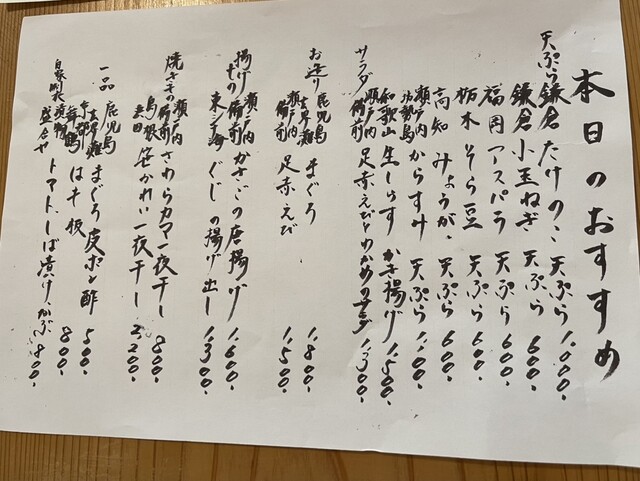 本日のおすすめ
天ぷら 鎌倉 たけのこ 天ぷら 1,000.
鎌倉 小玉ねぎ 天ぷら 600.
福岡 アスパラ 天ぷら 600.
栃木 そら豆 天ぷら 600.
高知 みょうが 天ぷら 600.
瀬戸内 からすみ 天ぷら 1,100.
和歌山 生しらす かき揚げ 1,500.
サラダ 瀬戸内 備前 足赤えびとわかめのサラダ 1,300.
お造り 鹿児島 まぐろ 1,800.
瀬戸内 備前 足赤えび 1,500.
揚げもの 瀬戸内 備前 かさごの唐揚げ 1,600.
東シナ海 ぐじの揚げ出し 1,300.
焼き 瀬戸内 備前 さわらカマ一夜干し 800.
島根 笹かれい一夜干し 2,200.
一品 鹿児島 まぐろ皮ポン酢 500.
京都 舞鶴 はす板 800.
自家製 盛合せ トマト、しば漬け、かぶ 800.